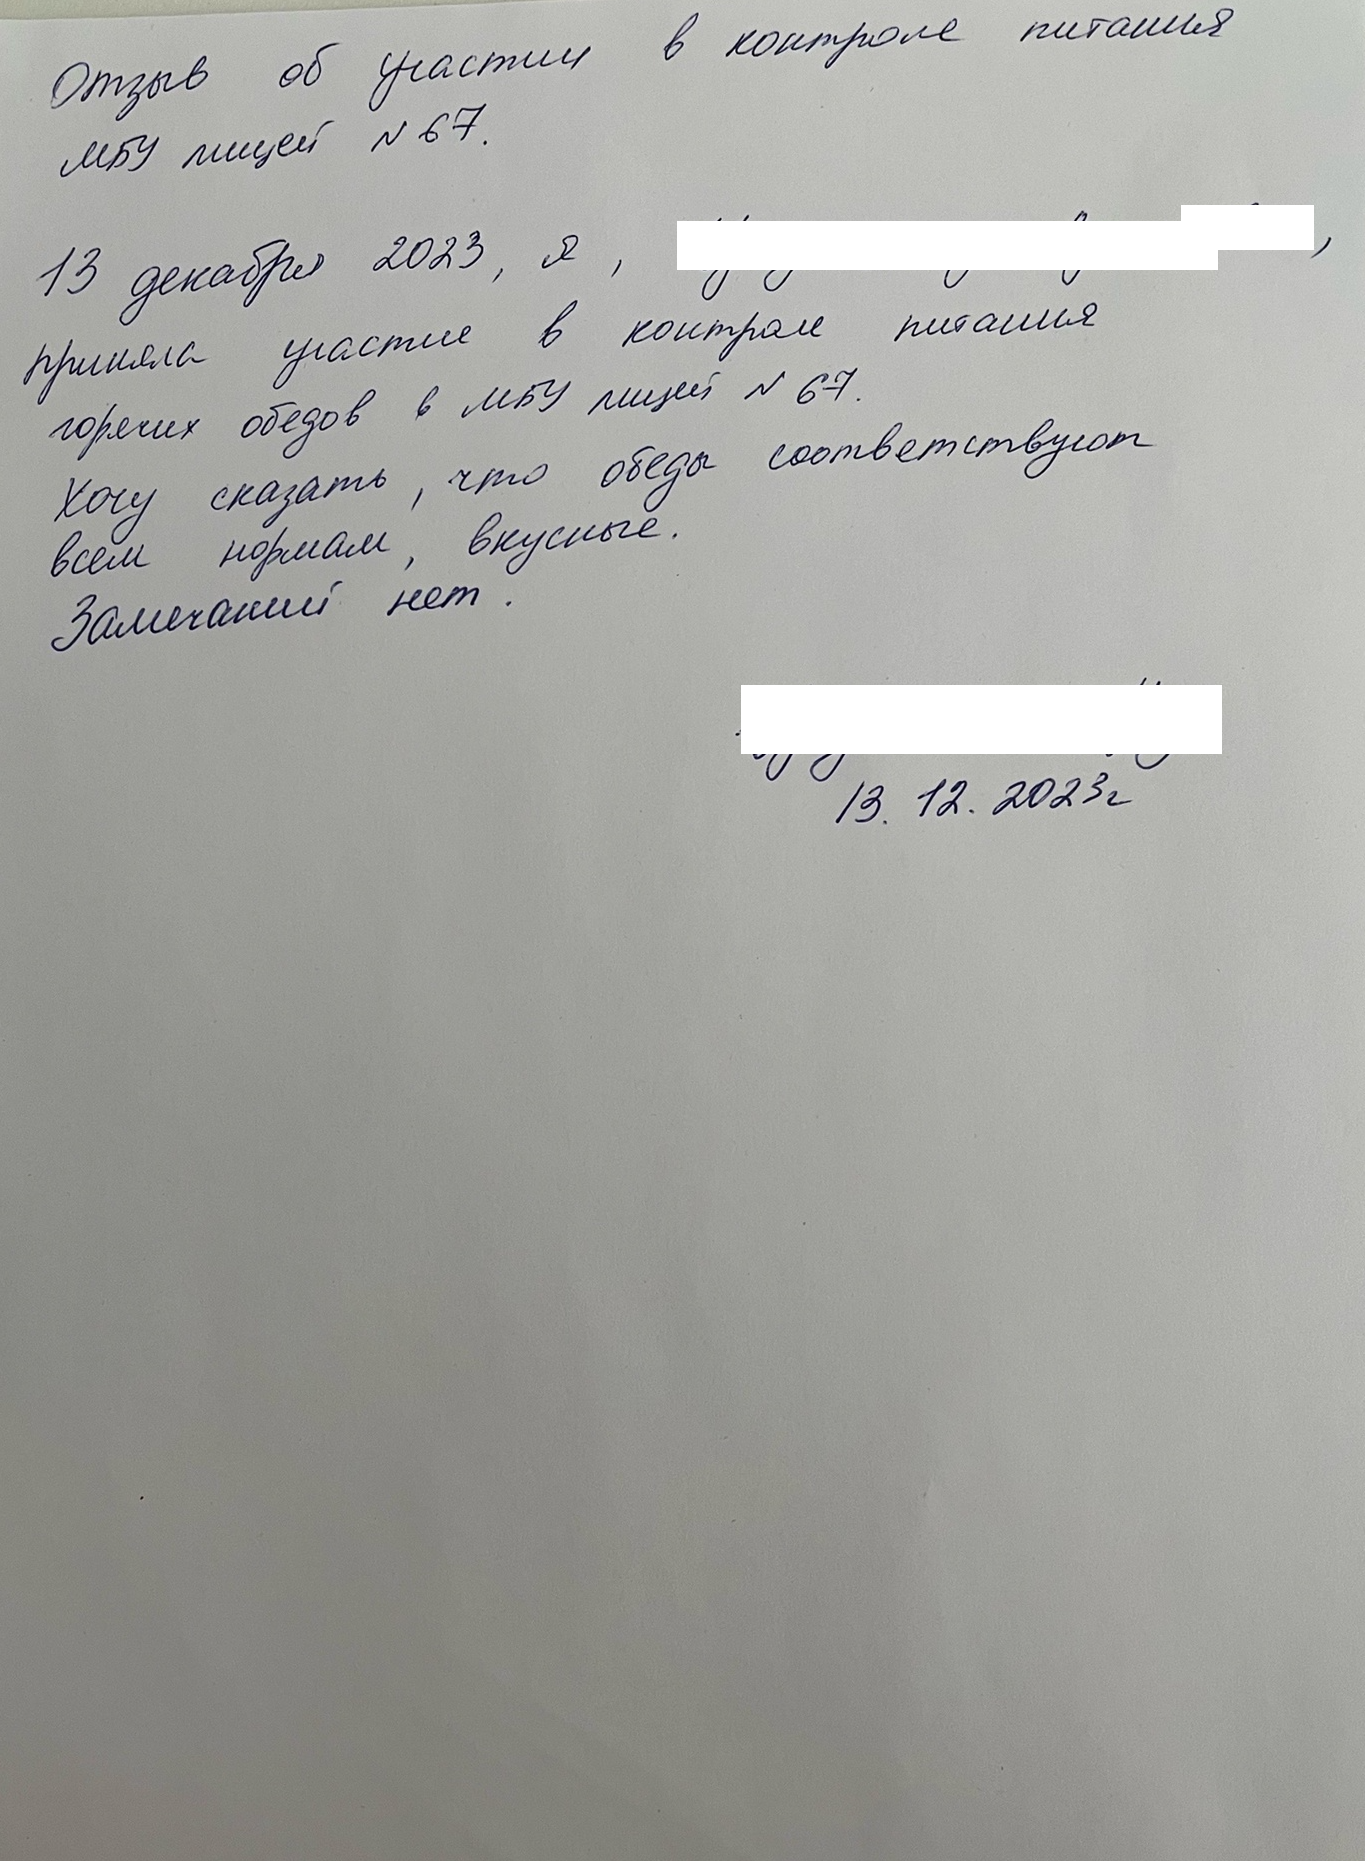 Отзыв об участии в контроле питания
МБУ лицей N 67.
13 декабря 2023, я, ,
приняла участие в контроле питания
горячих обедов в МБУ лицей N 67.
Хочу сказать, что обеды соответствуют
всем нормам, вкусные.
Замечаний нет.
13.12.2023г